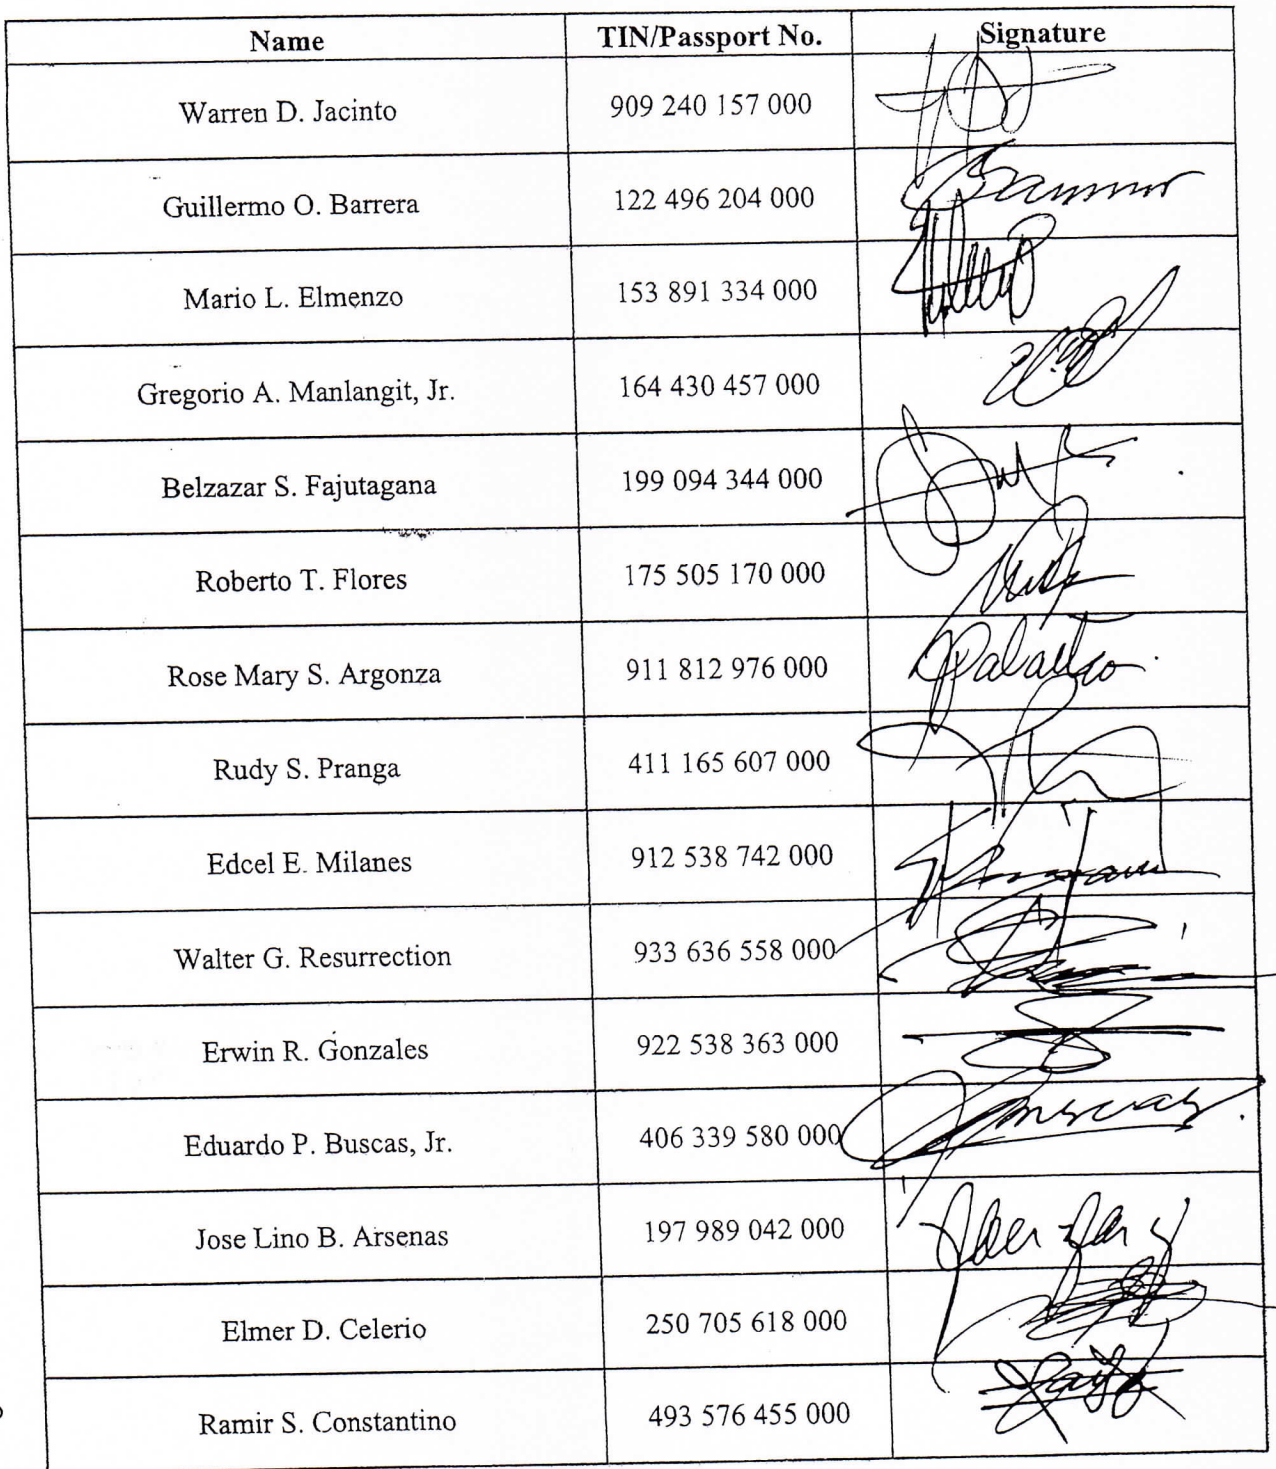 Name TIN/Passport No. Signature
Warren D. Jacinto 909 240 157 000
Guillermo O. Barrera 122 496 204 000
Mario L. Elmenzo 153 891 334 000
Gregorio A. Manlangit, Jr. 164 430 457 000
Belzazar S. Fajutagana 199 094 344 000
Roberto T. Flores 175 505 170 000
Rose Mary S. Argonza 911 812 976 000
Rudy S. Pranga 411 165 607 000
Edcel E. Milanes 912 538 742 000
Walter G. Resurrection 933 636 558 000
Erwin R. Gonzales 922 538 363 000
Eduardo P. Buscas, Jr. 406 339 580 000
Jose Lino B. Arsenas 197 989 042 000
Elmer D. Celerio 250 705 618 000
Ramir S. Constantino 493 576 455 000